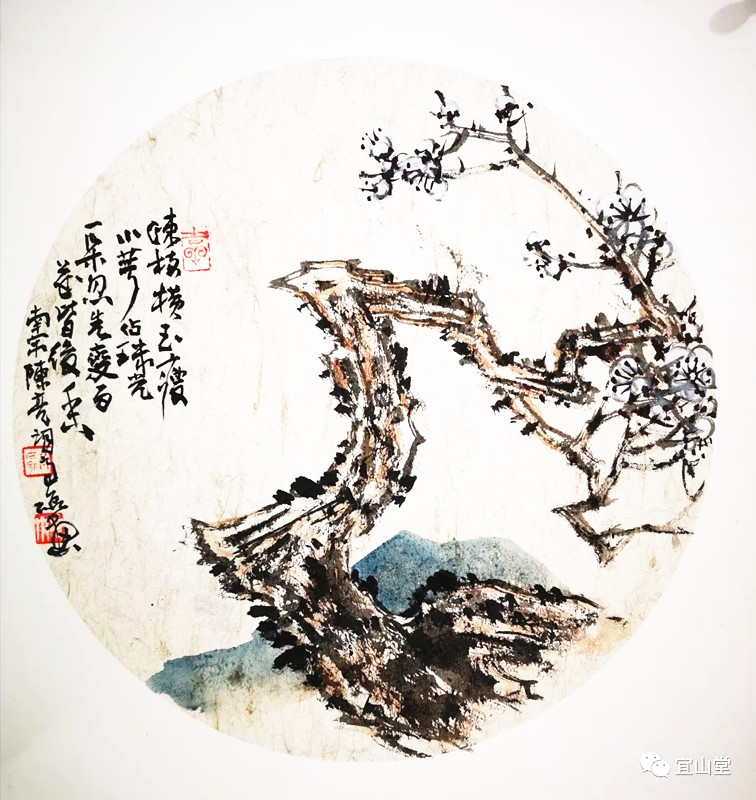 疎枝横玉瘦
小萼点珠光
一朵忽先變百
花皆後香
南宋陳亮詞
宜山堂